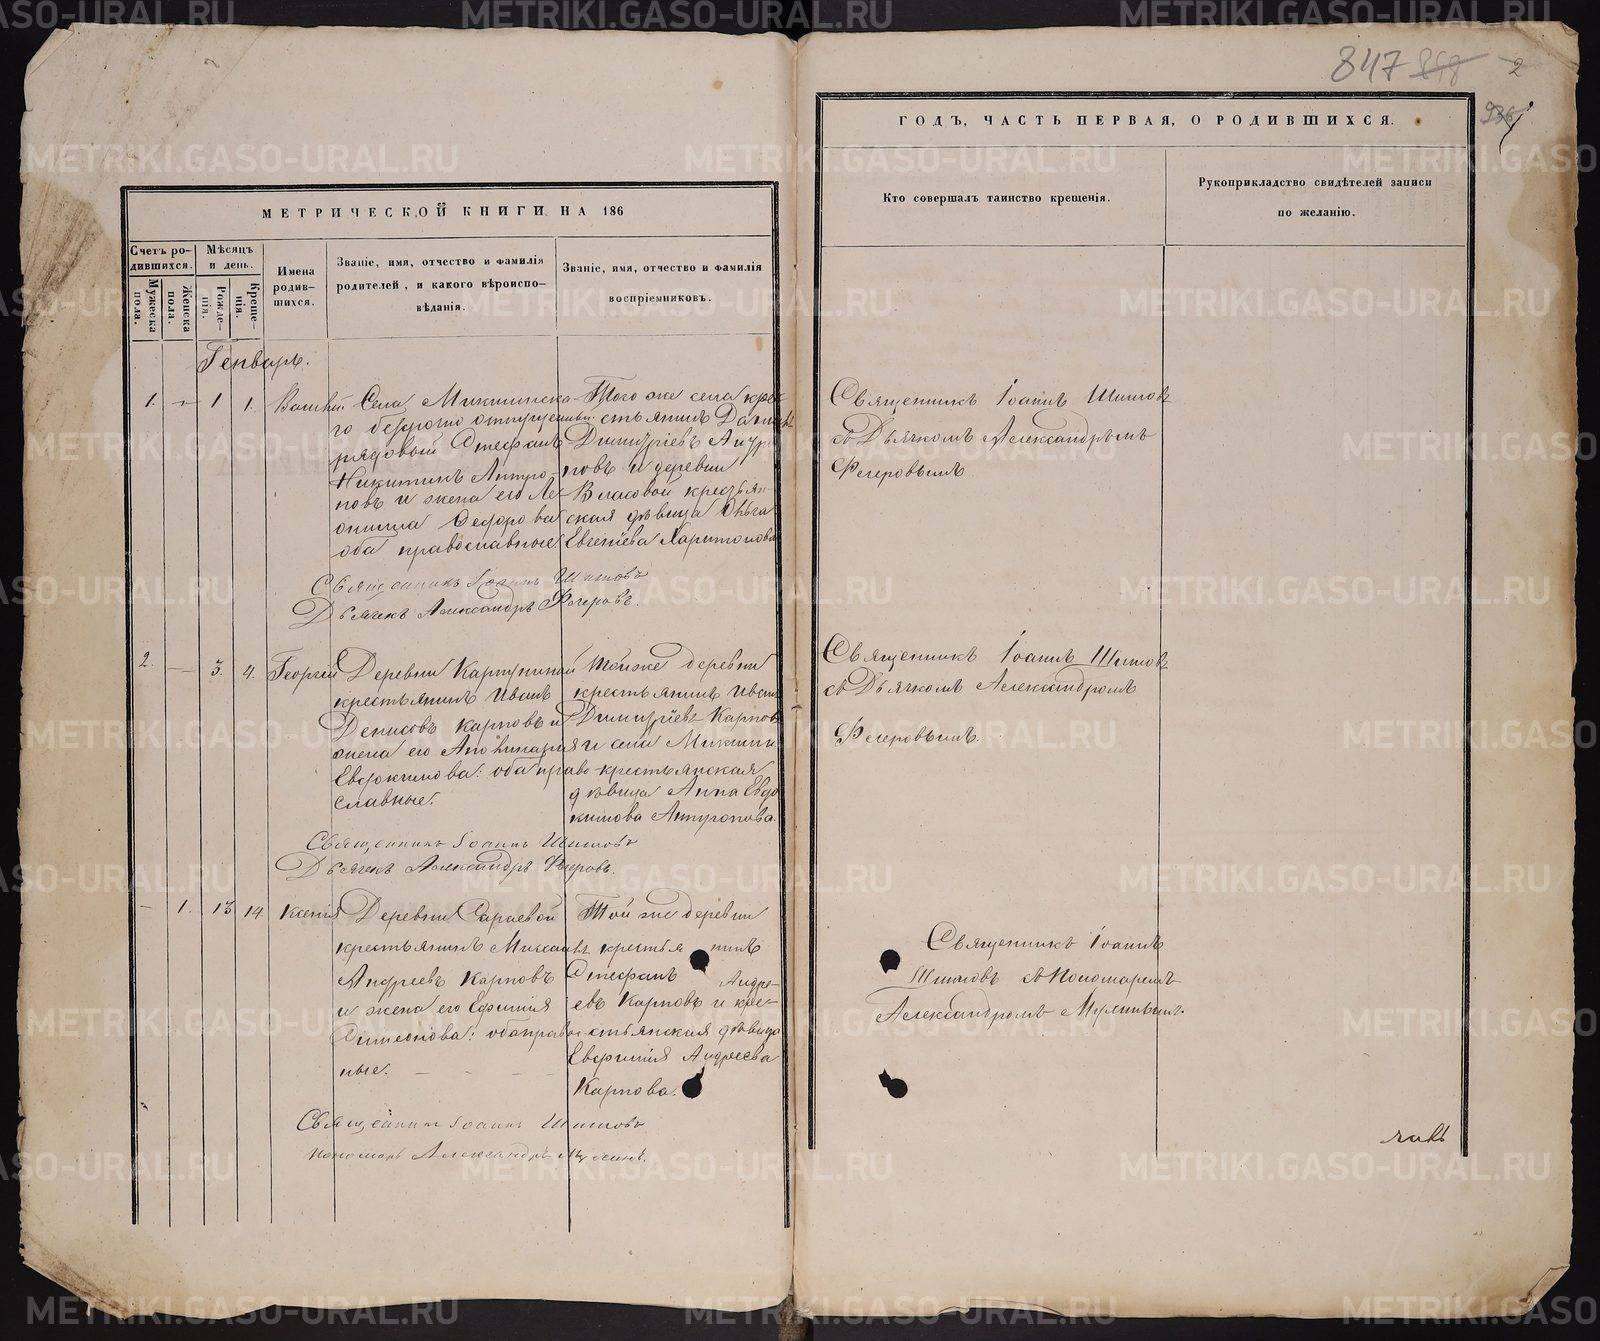 847 898 2
936
МЕТРИЧЕСКОЙ КНИГИ НА 186
ГОДЪ, ЧАСТЬ ПЕРВАЯ, О РОДИВШИХСЯ.
Счетъ ро-
дившихся.
Мужеска
пола.
Женска
пола.
Мѣсяцъ
и день.
Рожде-
нія.
Креще-
нія.
Имена
родив-
шихся.
Званіе, имя, отчество и фамилія
родителей, и какого вѣроиспо-
вѣданія.
Званіе, имя, отчество и фамилія
воспріемниковъ.
Кто совершалъ таинство крещенія.
Рукоприкладство свидѣтелей записи
по желанію.
Генварь.
1. — 1 1.
Василій
Села Микшинска-
го безсрочно отпускный
рядовой Стефанъ
Никитинъ Антро-
повъ и жена его Ле-
онилла Федорова
оба православные.
Того же села кре-
стьянинъ Даніилъ
Димитріевъ Антро-
повъ и деревни
Власовой крестьян-
ская дѣвица Ольга
Евгеніева Харитонова
Священникъ Іоаннъ Шишовъ
съ Дьячкомъ Александромъ
Флеровымъ
Священникъ Іоаннъ Шишовъ
Дьячекъ Александръ Флеровъ.
2. — 3. 4.
Георгій
Деревни Карпуниной
крестьянинъ Иванъ
Денисовъ Карповъ и
жена его Аполинарія
Евдокимова: оба право-
славные.
Той же деревни
крестьянинъ Иванъ
Димитріевъ Карповъ
и села Микшин
крестьянская
дѣвица Анна Евдо
кимова Антропова.
Священникъ Іоаннъ Шишовъ
съ Дьячкомъ Александромъ
Флеровымъ.
Священникъ Іоаннъ Шишовъ
Дьячекъ Александръ Флеровъ.
— 1. 13 14.
Ксенія
Деревни Сараевой
крестьянинъ Михаилъ
Андреевъ Карповъ
и жена его Ефимія
Симеонова: оба правос
ные.
Той же деревни
крестьянинъ
Стефанъ Андре-
евъ Карповъ и кре-
стьянская дѣвица
Евфимія Андреева
Карпова.
Священникъ Іоаннъ
Шишовъ съ Пономаремъ
Александромъ
Священникъ Іоаннъ Шишовъ
пономарь Александръ
METRIKI.GASO-URAL.RU